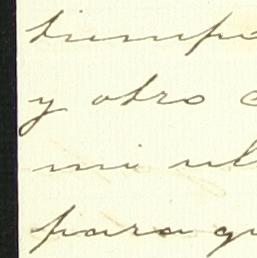 tiempo
y otro
mi ul
para qu